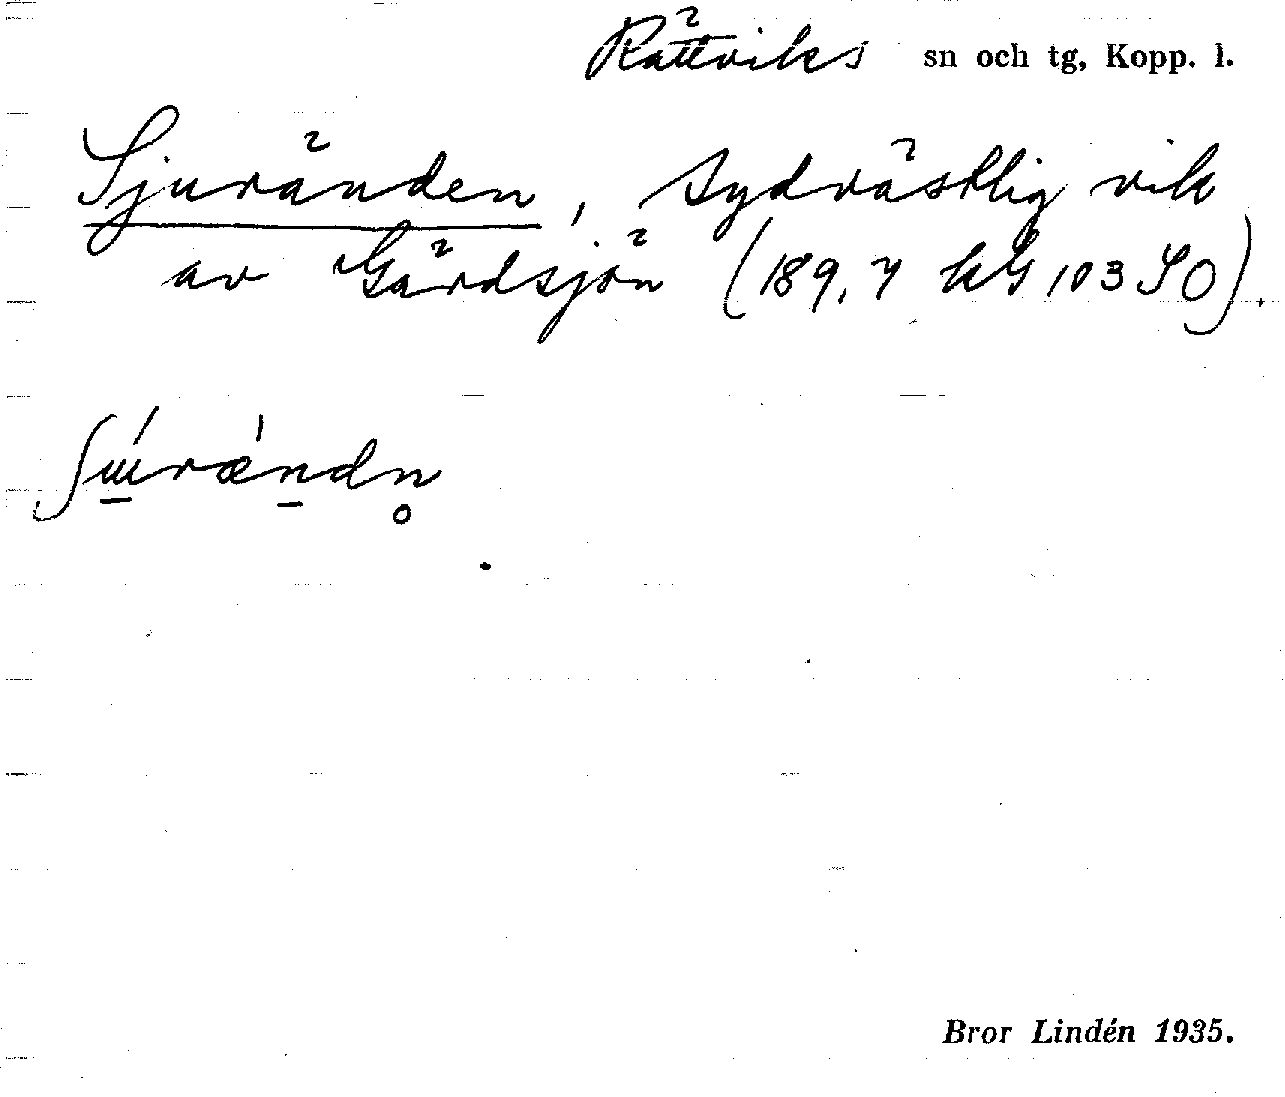 Rättviks sn och tg, Kopp. l.
Sjuränden, sydvästlig vik
av Gärdsjön (189,7 kG 103 SO).
Bror Lindén 1935.